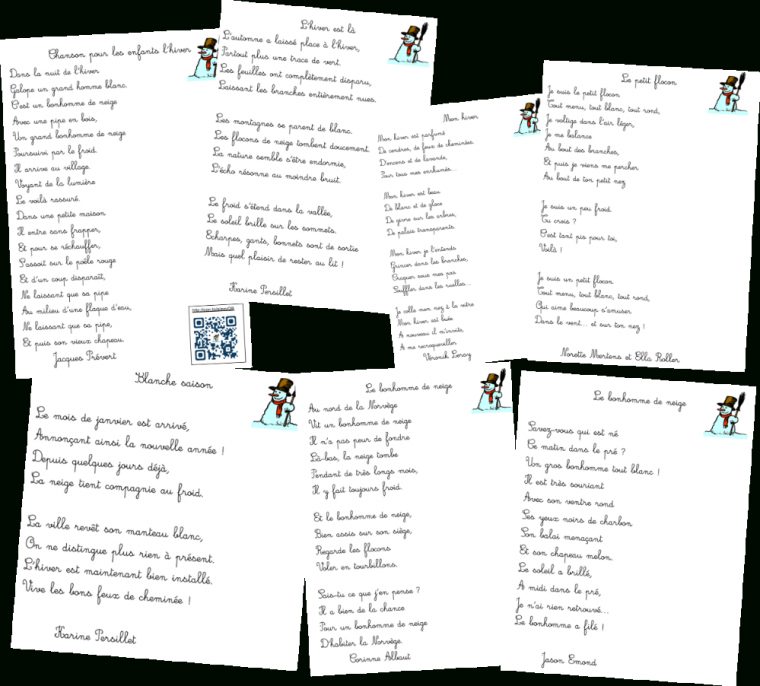 Chanson pour les enfants l'hiver
Dans la nuit de l'hiver
Galope un grand homme blanc.
C'est un bonhomme de neige
Avec une pipe en bois,
Un grand bonhomme de neige
Poursuivi par le froid.
Il arrive au village.
Voyant de la lumière
Le voilà rassuré.
Dans une petite maison
Il entre sans frapper,
Et pour se réchauffer,
S'assoit sur le poêle rouge
Et d'un coup disparaît,
Ne laissant que sa pipe
Au milieu d'une flaque d'eau,
Ne laissant que sa pipe,
Et puis son vieux chapeau.
Jacques Prévert
L'hiver est là
L'automne a laissé place à l'hiver,
Partout plus une trace de vert.
Les feuilles ont complètement disparu,
Laissant les branches entièrement nues.
Les montagnes se parent de blanc.
Les flocons de neige tombent doucement.
La nature semble s'être endormie,
L'écho résonne au moindre bruit.
Le froid s'étend dans la vallée,
Le soleil brille sur les sommets.
Echarpes, gants, bonnets sont de sortie
Mais quel plaisir de rester au lit !
Karine Persillet
Mon hiver
Mon hiver est parfumé
De cendres, de feux de cheminées
D'encens et de lavande,
Pour tous mes enrhumés...
Mon hiver est beau
De blanc et de glace
De givre sur les arbres,
De palais transparents.
Mon hiver je l'entends
Grincer dans les branches,
Craquer sous mes pas
Souffler dans les ruelles...
Je colle mon nez à la vitre
Mon hiver est buée
A nouveau il m'invite
A me recroqueviller
Véronik Leray
Le petit flocon
Je suis le petit flocon
Tout menu, tout blanc, tout rond,
Je voltige dans l'air léger,
Je me balance
Au bout des branches,
Et puis je viens me percher
Au bout de ton petit nez
Je suis un peu froid
Tu crois ?
C'est tant pis pour toi,
Voilà !
Je suis un petit flocon
Tout menu, tout blanc, tout rond,
Qui aime beaucoup s'amuser
Dans le vent... et sur ton nez !
Norette Mertens et Ella Roller
Blanche saison
Le mois de janvier est arrivé,
Annonçant ainsi la nouvelle année !
Depuis quelques jours déjà,
La neige tient compagnie au froid.
La ville revêt son manteau blanc,
On ne distingue plus rien à présent.
L'hiver est maintenant bien installé.
Vive les bons feux de cheminée !
Karine Persillet
Le bonhomme de neige
Au nord de la Norvège
Vit un bonhomme de neige
Il n'a pas peur de fondre
Là-bas, la neige tombe
Pendant de très longs mois,
Il y fait toujours froid.
Et le bonhomme de neige,
Bien assis sur son siège,
Regarde les flocons
Voler en tourbillons.
Sais-tu ce que j'en pense ?
Il a bien de la chance
Pour un bonhomme de neige
D'habiter la Norvège
Corinne Albaut
Le bonhomme de neige
Savez-vous qui est né
Ce matin dans le pré ?
Un gros bonhomme tout blanc !
Il est très souriant
Avec son ventre rond
Ses yeux noirs de charbon
Son balai menaçant
Et son chapeau melon.
Le soleil a brillé,
A midi dans le pré,
Je n'ai rien retrouvé...
Le bonhomme a filé !
Jason Emond